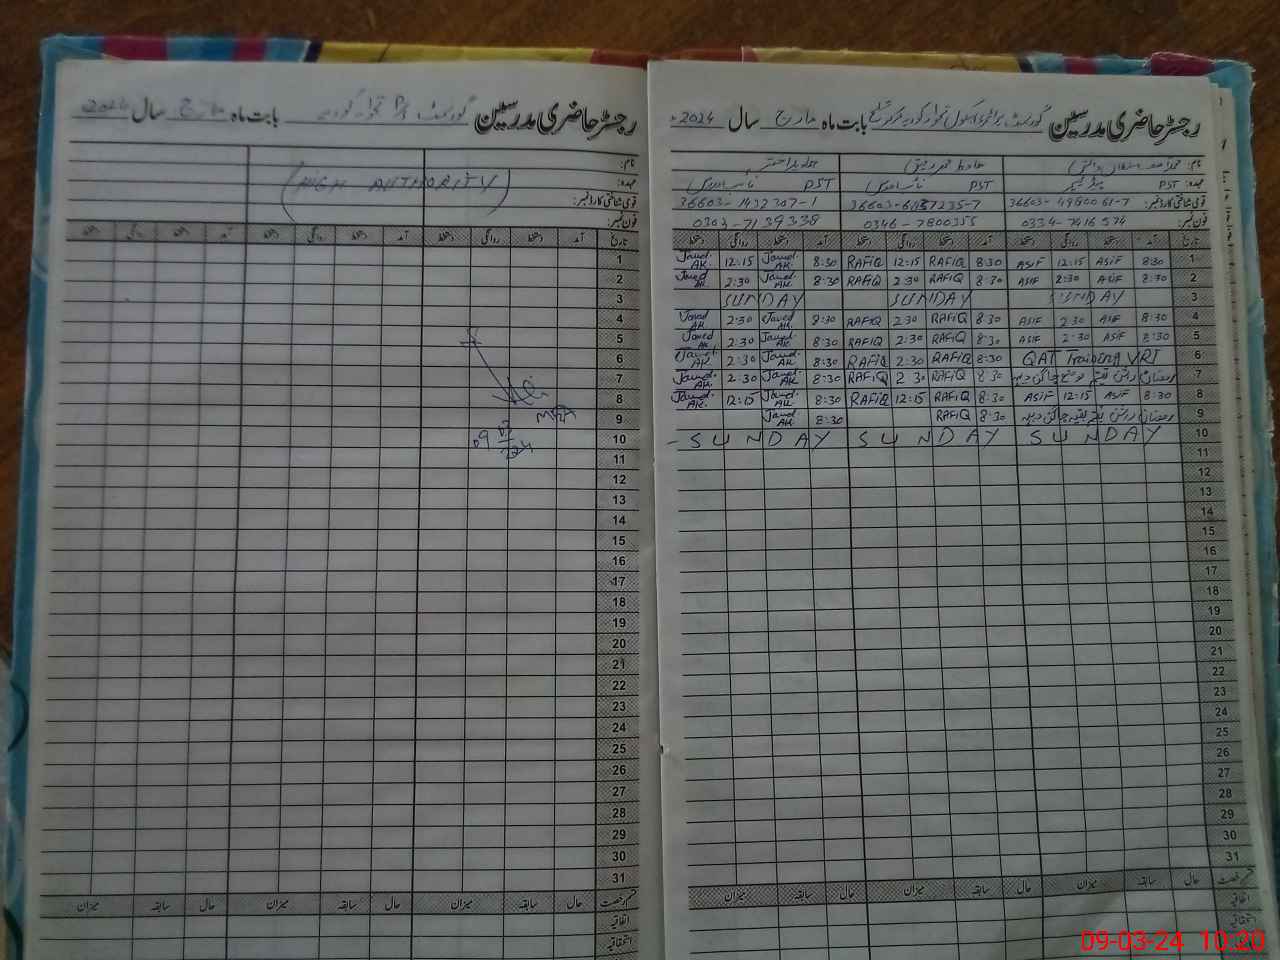 رجسٹر حاضری مدرسین گورنمنٹ پرائمری سکول بابت ماہ مارچ سال 2024
نام:
عہدہ: PST ہیڈ ٹیچر PST PST
قومی شناختی کارڈ نمبر: 36603-4980061-7 36603-1432307-1
فون نمبر: 0334-7416574 0346-7800355 0303-7139338
تاریخ آمد دستخط روانگی دستخط آمد دستخط روانگی دستخط آمد دستخط روانگی دستخط
1 8:30 ASIF 12:15 ASIF 8:30 RAFIQ 12:15 RAFIQ 8:30 Javed AK. 12:15 Javed AK.
2 8:30 ASIF 2:30 ASIF 8:30 RAFIQ 2:30 RAFIQ 8:30 Javed AK. 2:30 Javed AK.
3 SUNDAY SUNDAY SUNDAY
4 8:30 ASIF 2:30 ASIF 8:30 RAFIQ 2:30 RAFIQ 8:30 Javed AK. 2:30 Javed AK.
5 8:30 ASIF 2:30 ASIF 8:30 RAFIQ 2:30 RAFIQ 8:30 Javed AK. 2:30 Javed AK.
6 QAT Training VRI 8:30 RAFIQ 2:30 RAFIQ 8:30 Javed AK. 2:30 Javed AK.
7 رمضان راشن 8:30 RAFIQ 2:30 RAFIQ 8:30 Javed AK. 2:30 Javed AK.
8 8:30 ASIF 12:15 ASIF 8:30 RAFIQ 12:15 RAFIQ 8:30 Javed AK. 12:15 Javed AK.
9 رمضان راشن 8:30 RAFIQ 8:30 Javed AK.
10 SUNDAY SUNDAY SUNDAY
11
12
13
14
15
16
17
18
19
20
21
22
23
24
25
26
27
28
29
30
31
قسم رخصت حال سابقہ میزان حال سابقہ میزان حال سابقہ میزان
اتفاقیہ
استحقاقیہ
رجسٹر حاضری مدرسین گورنمنٹ بابت ماہ مارچ سال 2024
نام:
عہدہ: (HIGH AUTHORITY)
قومی شناختی کارڈ نمبر:
فون نمبر:
تاریخ آمد دستخط روانگی دستخط آمد دستخط روانگی دستخط آمد دستخط روانگی دستخط
1
2
3
4
5
6
7
8
9 MEA
10 09 03 024
11
12
13
14
15
16
17
18
19
20
21
22
23
24
25
26
27
28
29
30
31
قسم رخصت حال سابقہ میزان حال سابقہ میزان حال سابقہ میزان
اتفاقیہ
استحقاقیہ
09-03-24 10:20